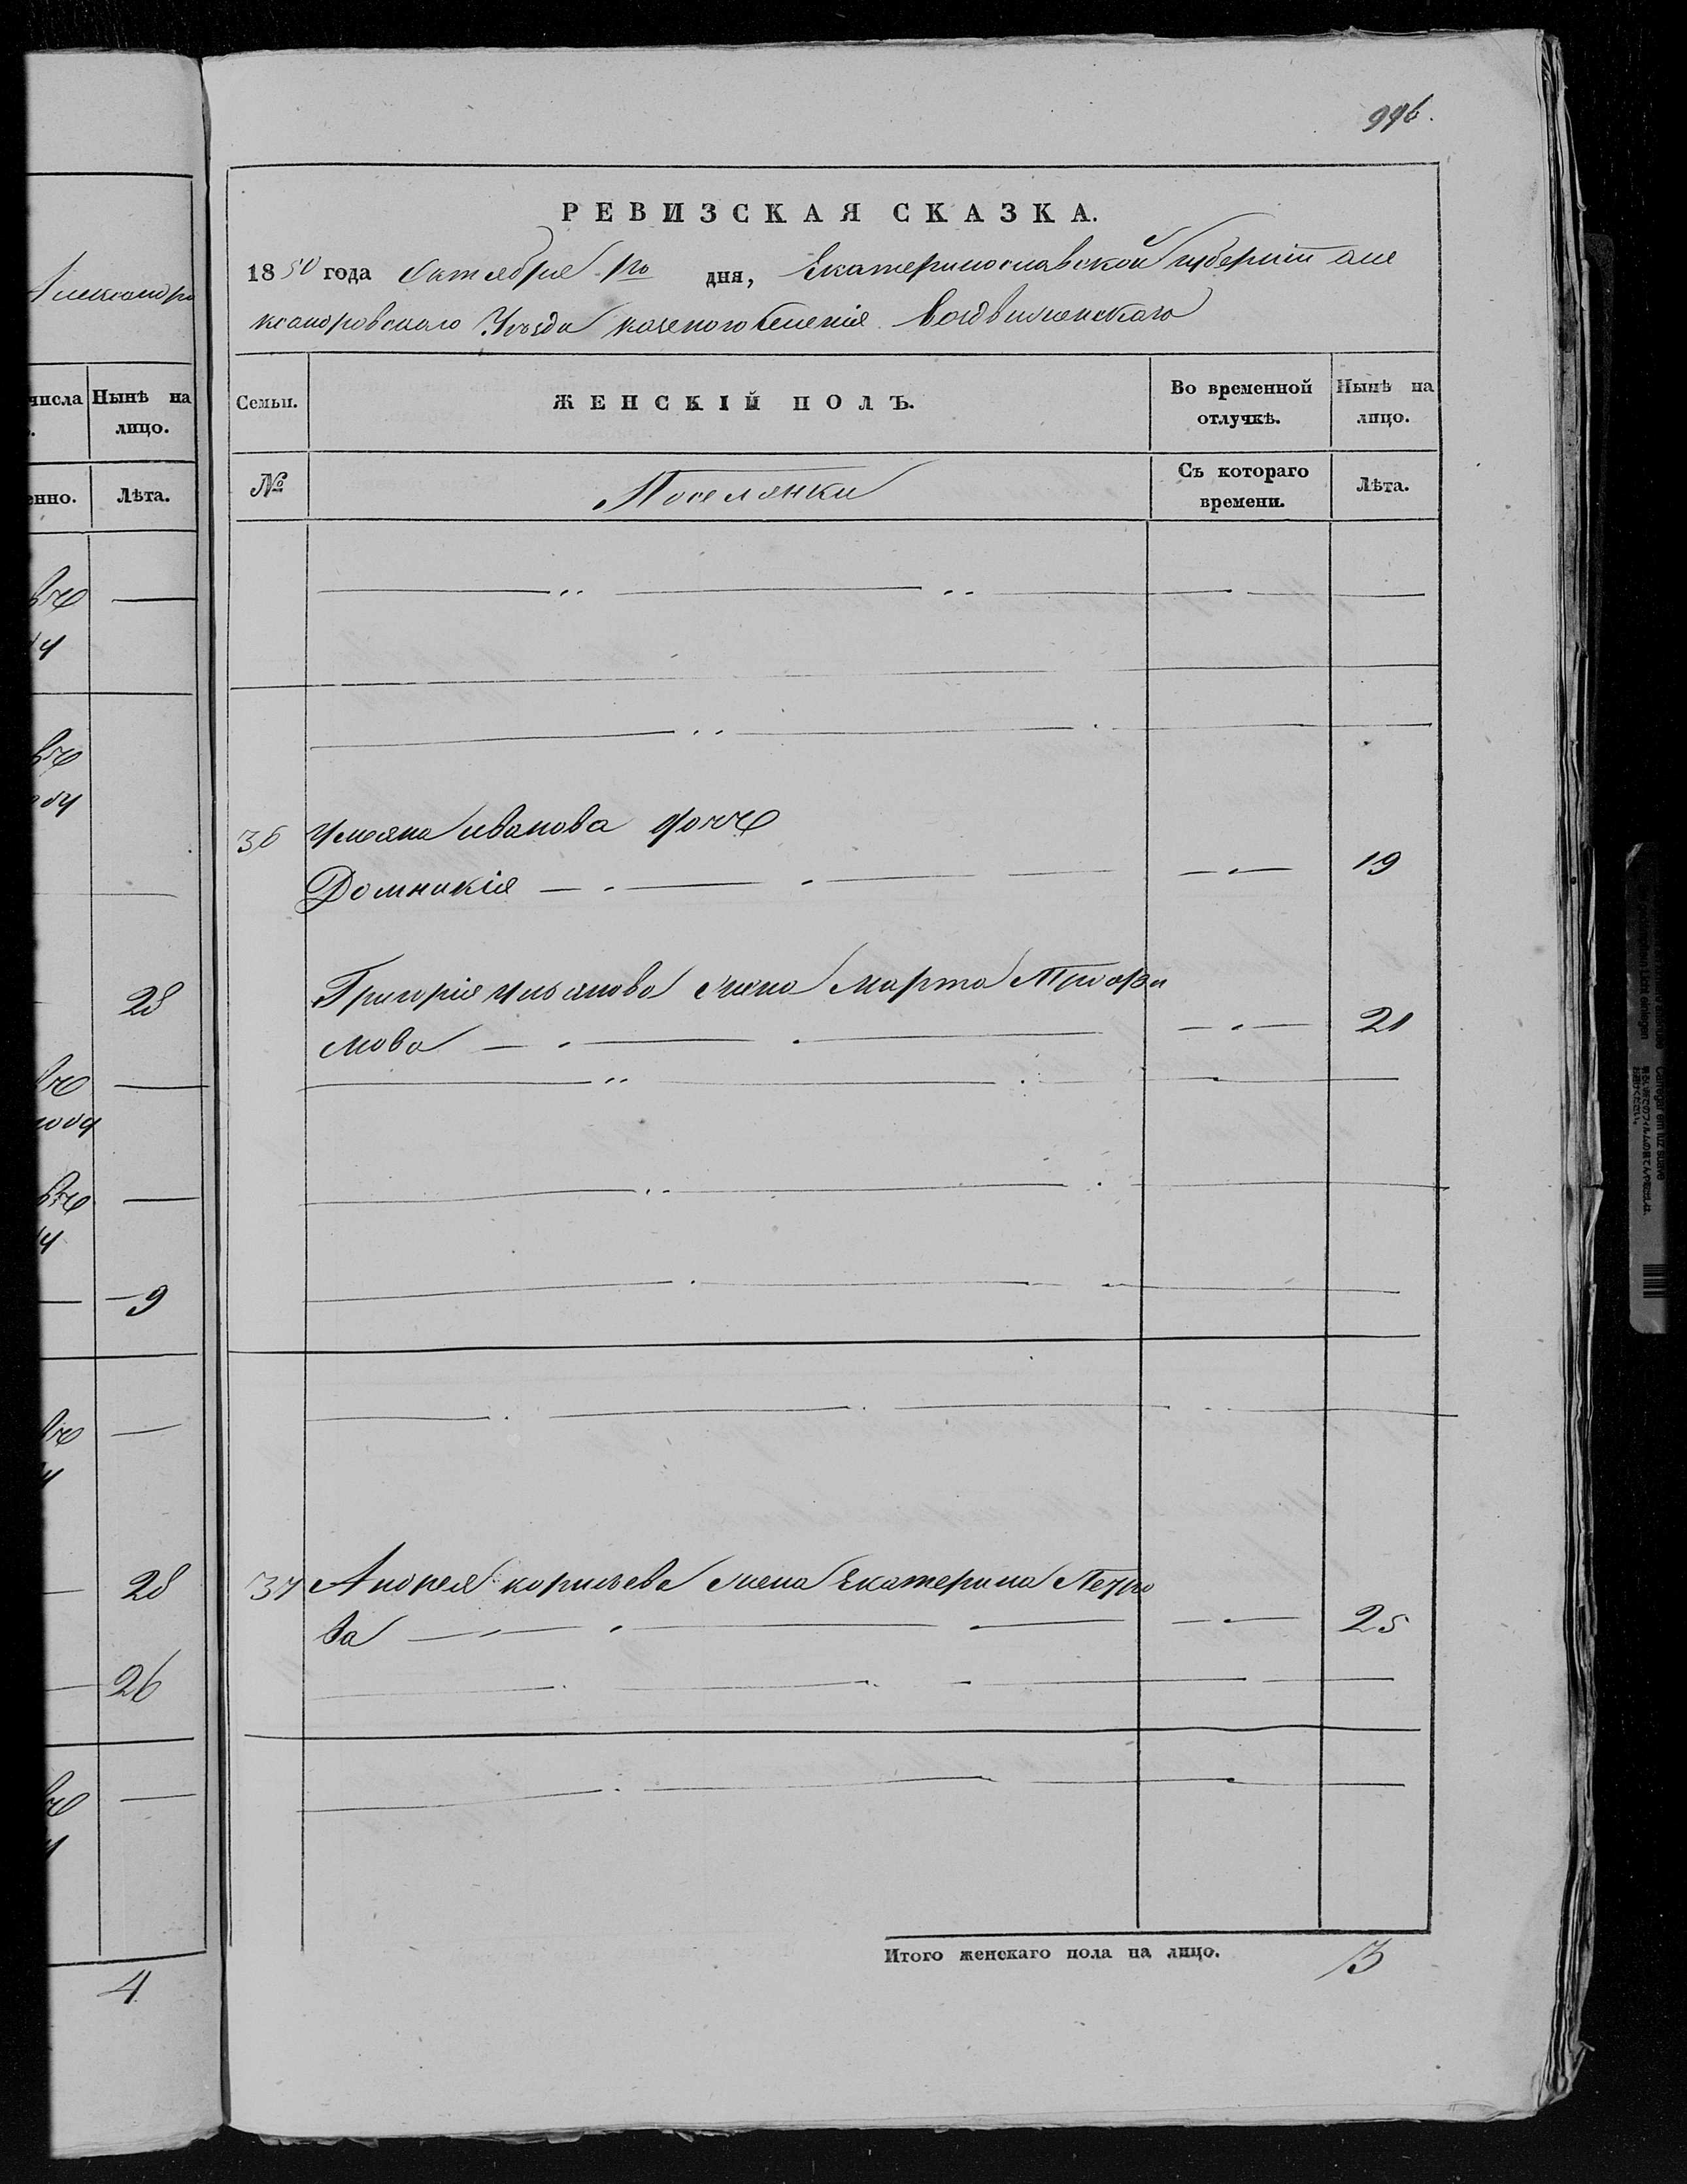 996.
РЕВИЗСКАЯ СКАЗКА.
1850 года Октября 1го дня, Екатеринославской губерніи але
ксандровскаго Уѣзда казеного селенія Воздвиженскаго
Семьи. ЖЕНСКІЙ ПОЛЪ. Во временной отлучкѣ. Нынѣ на лицо.
№ Поселянки Съ котораго времени. Лѣта.
36 Ульяна иванова дочь
Домникія 19
Григорія Ульянова жена Марта Трофи
мова 21
37 Андрея корнѣева жена Екатерина Петро
ва 25
Итого женскаго пола на лицо. 3
Александро
числа Нынѣ на лицо.
енно. Лѣта.
28
9
28
26
4